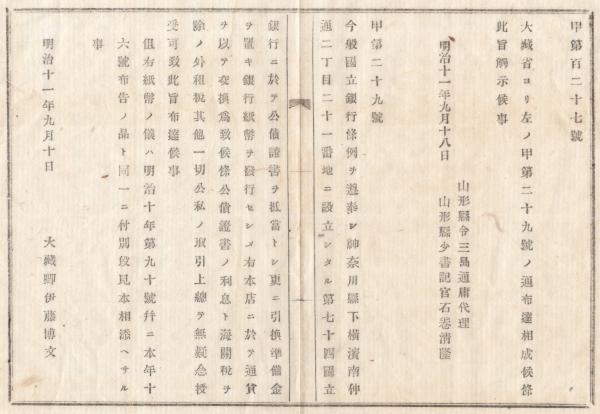 甲第百二十七號
大藏省ヨリ左ノ甲第二十九號ノ通布達相成候條
此旨觸示候事
山形縣令三島通庸代理
明治十一年九月十八日
山形縣少書記官石卷淸隆
甲第二十九號
今般國立銀行條例ヲ遵奉シ神奈川縣下橫濱南仲
通二丁目二十一番地ニ設立シタル第七十四國立
銀行ニ於テ公債證書ヲ抵當トシ更ニ引換準備金
ヲ置キ銀行紙幣ヲ發行セシメ右本店ニ於テ通貨
ヲ以テ交換爲致候條公債證書ノ利息ト海關稅ヲ
除ノ外租稅其他一切公私ノ取引上總テ無疑念授
受可致此旨布達候事
但右紙幣ノ儀ハ明治十年第九十號幷ニ本年十
六號布告ノ品ト同一ニ付別段見本相添ヘサル
事
明治十一年九月十日
大藏卿伊藤博文